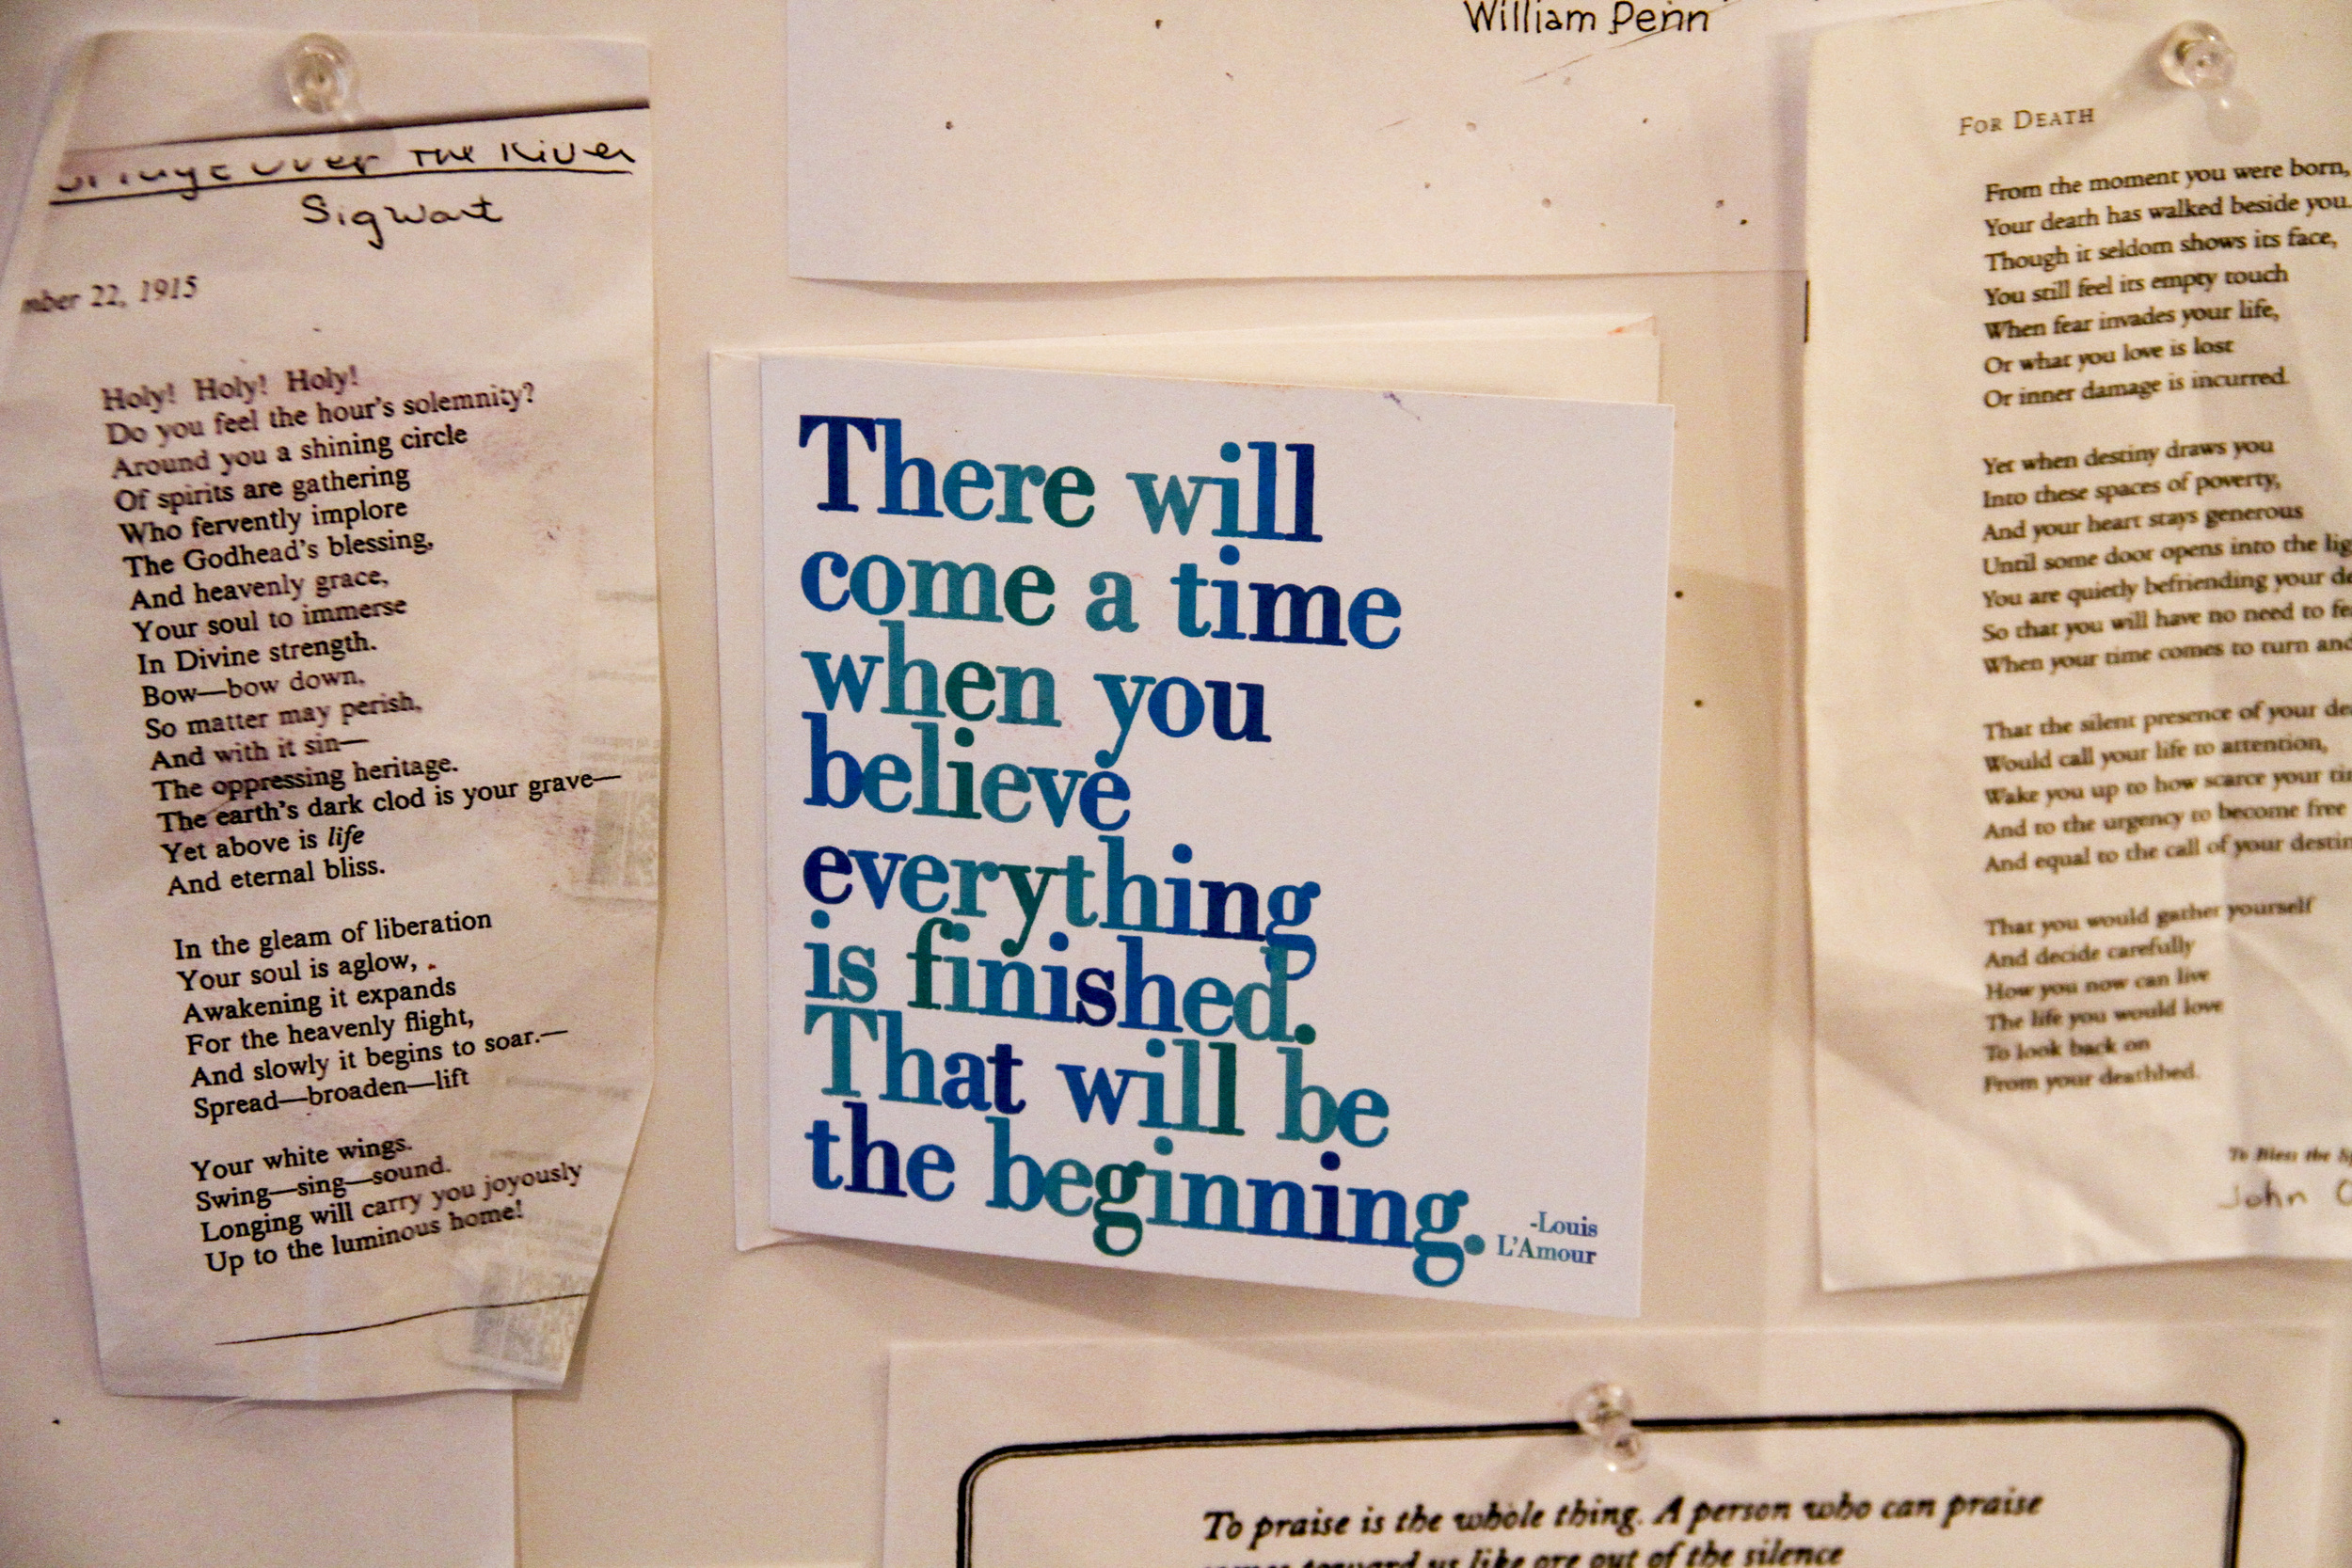 William Penn
Over The River
Sigwart
22, 1915
Holy! Holy! Holy!
Do you feel the hour's solemnity?
Around you a shining circle
Of spirits are gathering
Who fervently implore
The Godhead's blessing,
And heavenly grace,
Your soul to immerse
In Divine strength.
Bow—bow down,
So matter may perish,
And with it sin—
The oppressing heritage.
The earth's dark clod is your grave—
Yet above is life
And eternal bliss.
In the gleam of liberation
Your soul is aglow,
Awakening it expands
For the heavenly flight,
And slowly it begins to soar.—
Spread—broaden—lift
Your white wings.
Swing—sing—sound.
Longing will carry you joyously
Up to the luminous home!
There will
come a time
when you
believe
everything
is finished.
That will be
the beginning.
-Louis
L'Amour
FOR DEATH
From the moment you were born,
Your death has walked beside you.
Though it seldom shows its face,
You still feel its empty touch
When fear invades your life,
Or what you love is lost
Or inner damage is incurred.
Yet when destiny draws you
Into these spaces of poverty,
And your heart stays generous
Until some door opens into the
You are quietly befriending your
So that you will have no need to
When your time comes to turn and
That the silent presence of your
Would call your life to attention,
Wake you up to how scarce your
And to the urgency to become free
And equal to the call of your
That you would gather yourself
And decide carefully
How you now can live
The life you would love
To look back on
From your deathbed.
To Bless the
John
To praise is the whole thing. A person who can praise
toward us like ore out of the silence